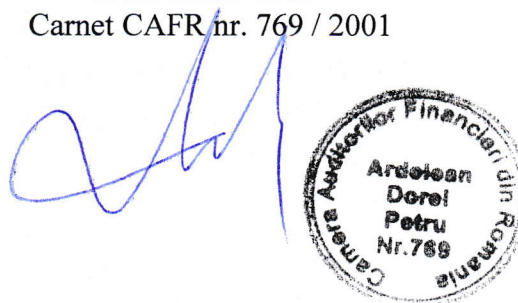 Carnet CAFR nr. 769 / 2001
Camera Auditorilor Financiari din Romania
Ardelean
Dorel
Petru
Nr.769